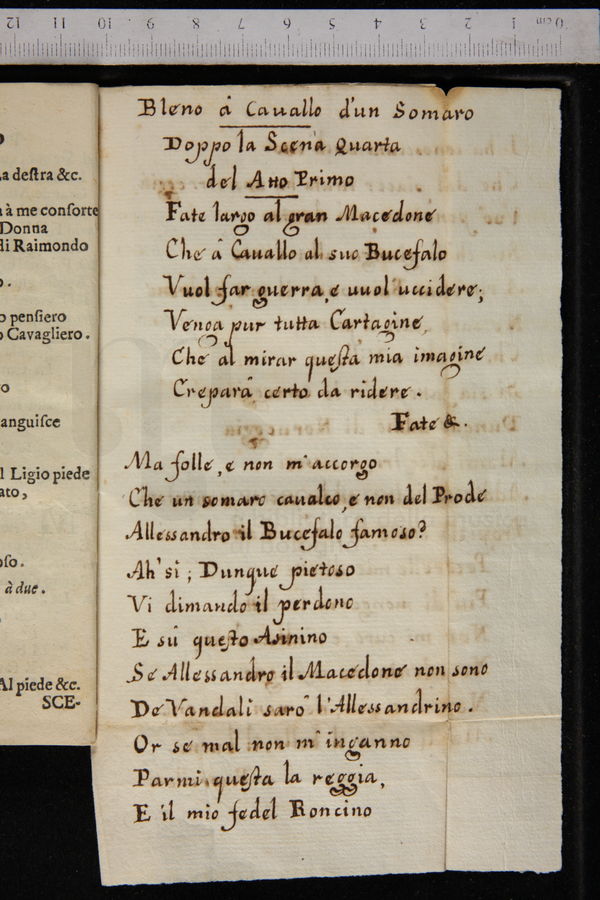 a destra &c.
à me consorte
Donna
di Raimondo
pensiero
Cavagliero.
anguisce
l Ligio piede
ato,
oso.
à due.
Al piede &c.
SCE-
Bleno â Cauallo d'un Somaro
Doppo la Scena Quarta
del Atto Primo
Fate largo al gran Macedone
Che â Cauallo al suo Bucefalo
Vuol far guerra, e uuol uccidere;
Venga pur tutta Cartagine,
Che al mirar questa mia imagine
Creparâ certo da ridere.
Fate &.
Ma folle, e non m'accorgo
Che un somaro caualco, e non del Prode
Allessandro il Bucefalo famoso?
Ah' sì; Dunque pietoso
Vi dimando il perdono
E sù questo Asinino
Se Allessandro il Macedone non sono
De Vandali sarò l'Allessandrino.
Or se mal non m'inganno
Parmi questa la reggia,
E il mio fedel Roncino
0 cm 1 2 3 4 5 6 7 8 9 10 11 12